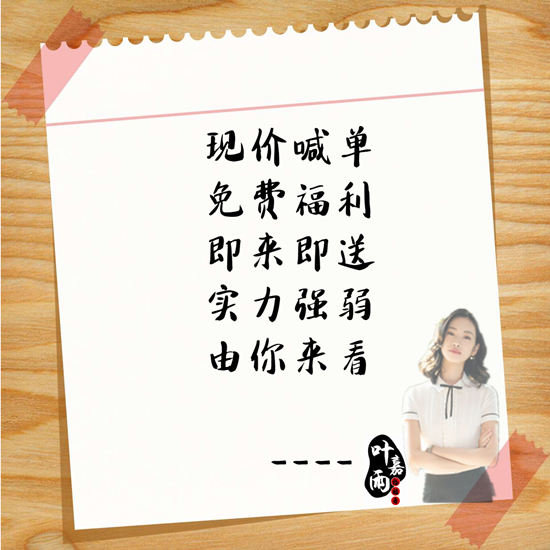 现价喊单
免费福利
即来即送
实力强弱
由你来看
----
叶嘉雨